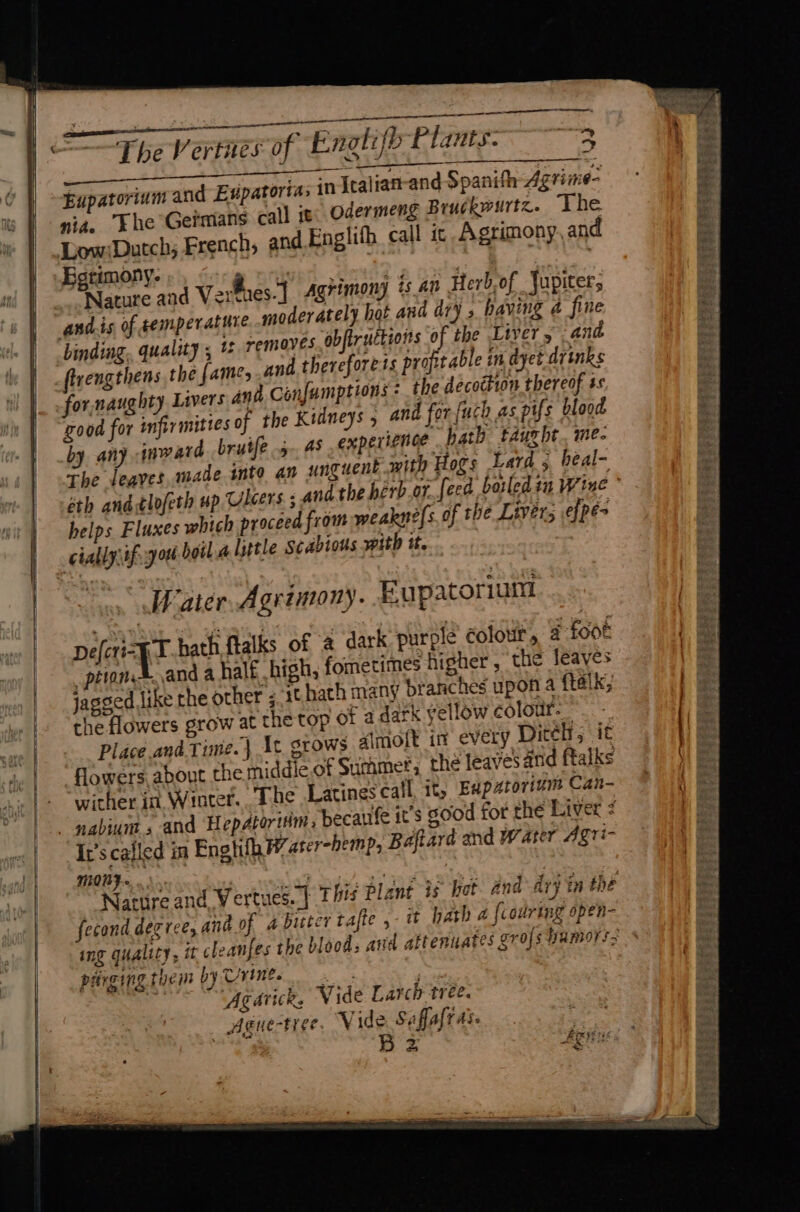 The Vertues of Engliſh Plants. 3
Eupatorium and Eupatoria, in Italian and Spaniſh Agrimo-
nia. The Germans call it Odermeng Bruckwurtz. The
Low Dutch, French, and Engliſh call it Agrimony, and
Egrimony.
Nature and Vertues.] Agrimony is an Herb of Jupiter,
and is of temperature moderately hot and dry, having a fine
binding quality; it removes obſtructions of the Liver, and
ſtrengthens the ſame, and therefore is profitable in dyet drinks
for naughty Livers and Conſumptions: the decoction thereof is
good for infirmities of the Kidneys, and for ſuch as piſs blood
by any inward bruiſe, as experience hath taught me.
The leaves made into an unguent with Hogs Lard, heal-
eth and cloſeth up Ulcers; and the herb or ſeed boiled in Wine
helps Fluxes which proceed from weakneſs of the Liver, eſpe-
cially if you boil a little Scabious with it.
Water Agrimony. Eupatorium
Deſcri-] IT hath ſtalks of a dark purple colour, a foot
ption. and a half high, ſometimes higher, the leaves
jagged like the other; it hath many branches upon a ſtalk,
the flowers grow at the top of a dark yellow colour.
Place and Time.] It grows almoſt in every Ditch, it
flowers about the middle of Summer, the leaves and ſtalks
wither in Winter. The Latines call it, Eupatorium Can-
nabium, and Hepatorium, becauſe it's good for the Liver:
It's called in Engliſh Water-hemp, Baſtard and Water Agri-
mony.
Nature and Vertues.] This Plant is hot and dry in the
ſecond degree, and of a bitter taſte, it hath a ſcouring open-
ing quality, it cleanſes the blood, and attenuates groſs humors,
purging them by Urine.
Agarick, Vide Larch tree.
Ague-tree. Vide Saſſafras.
B 2